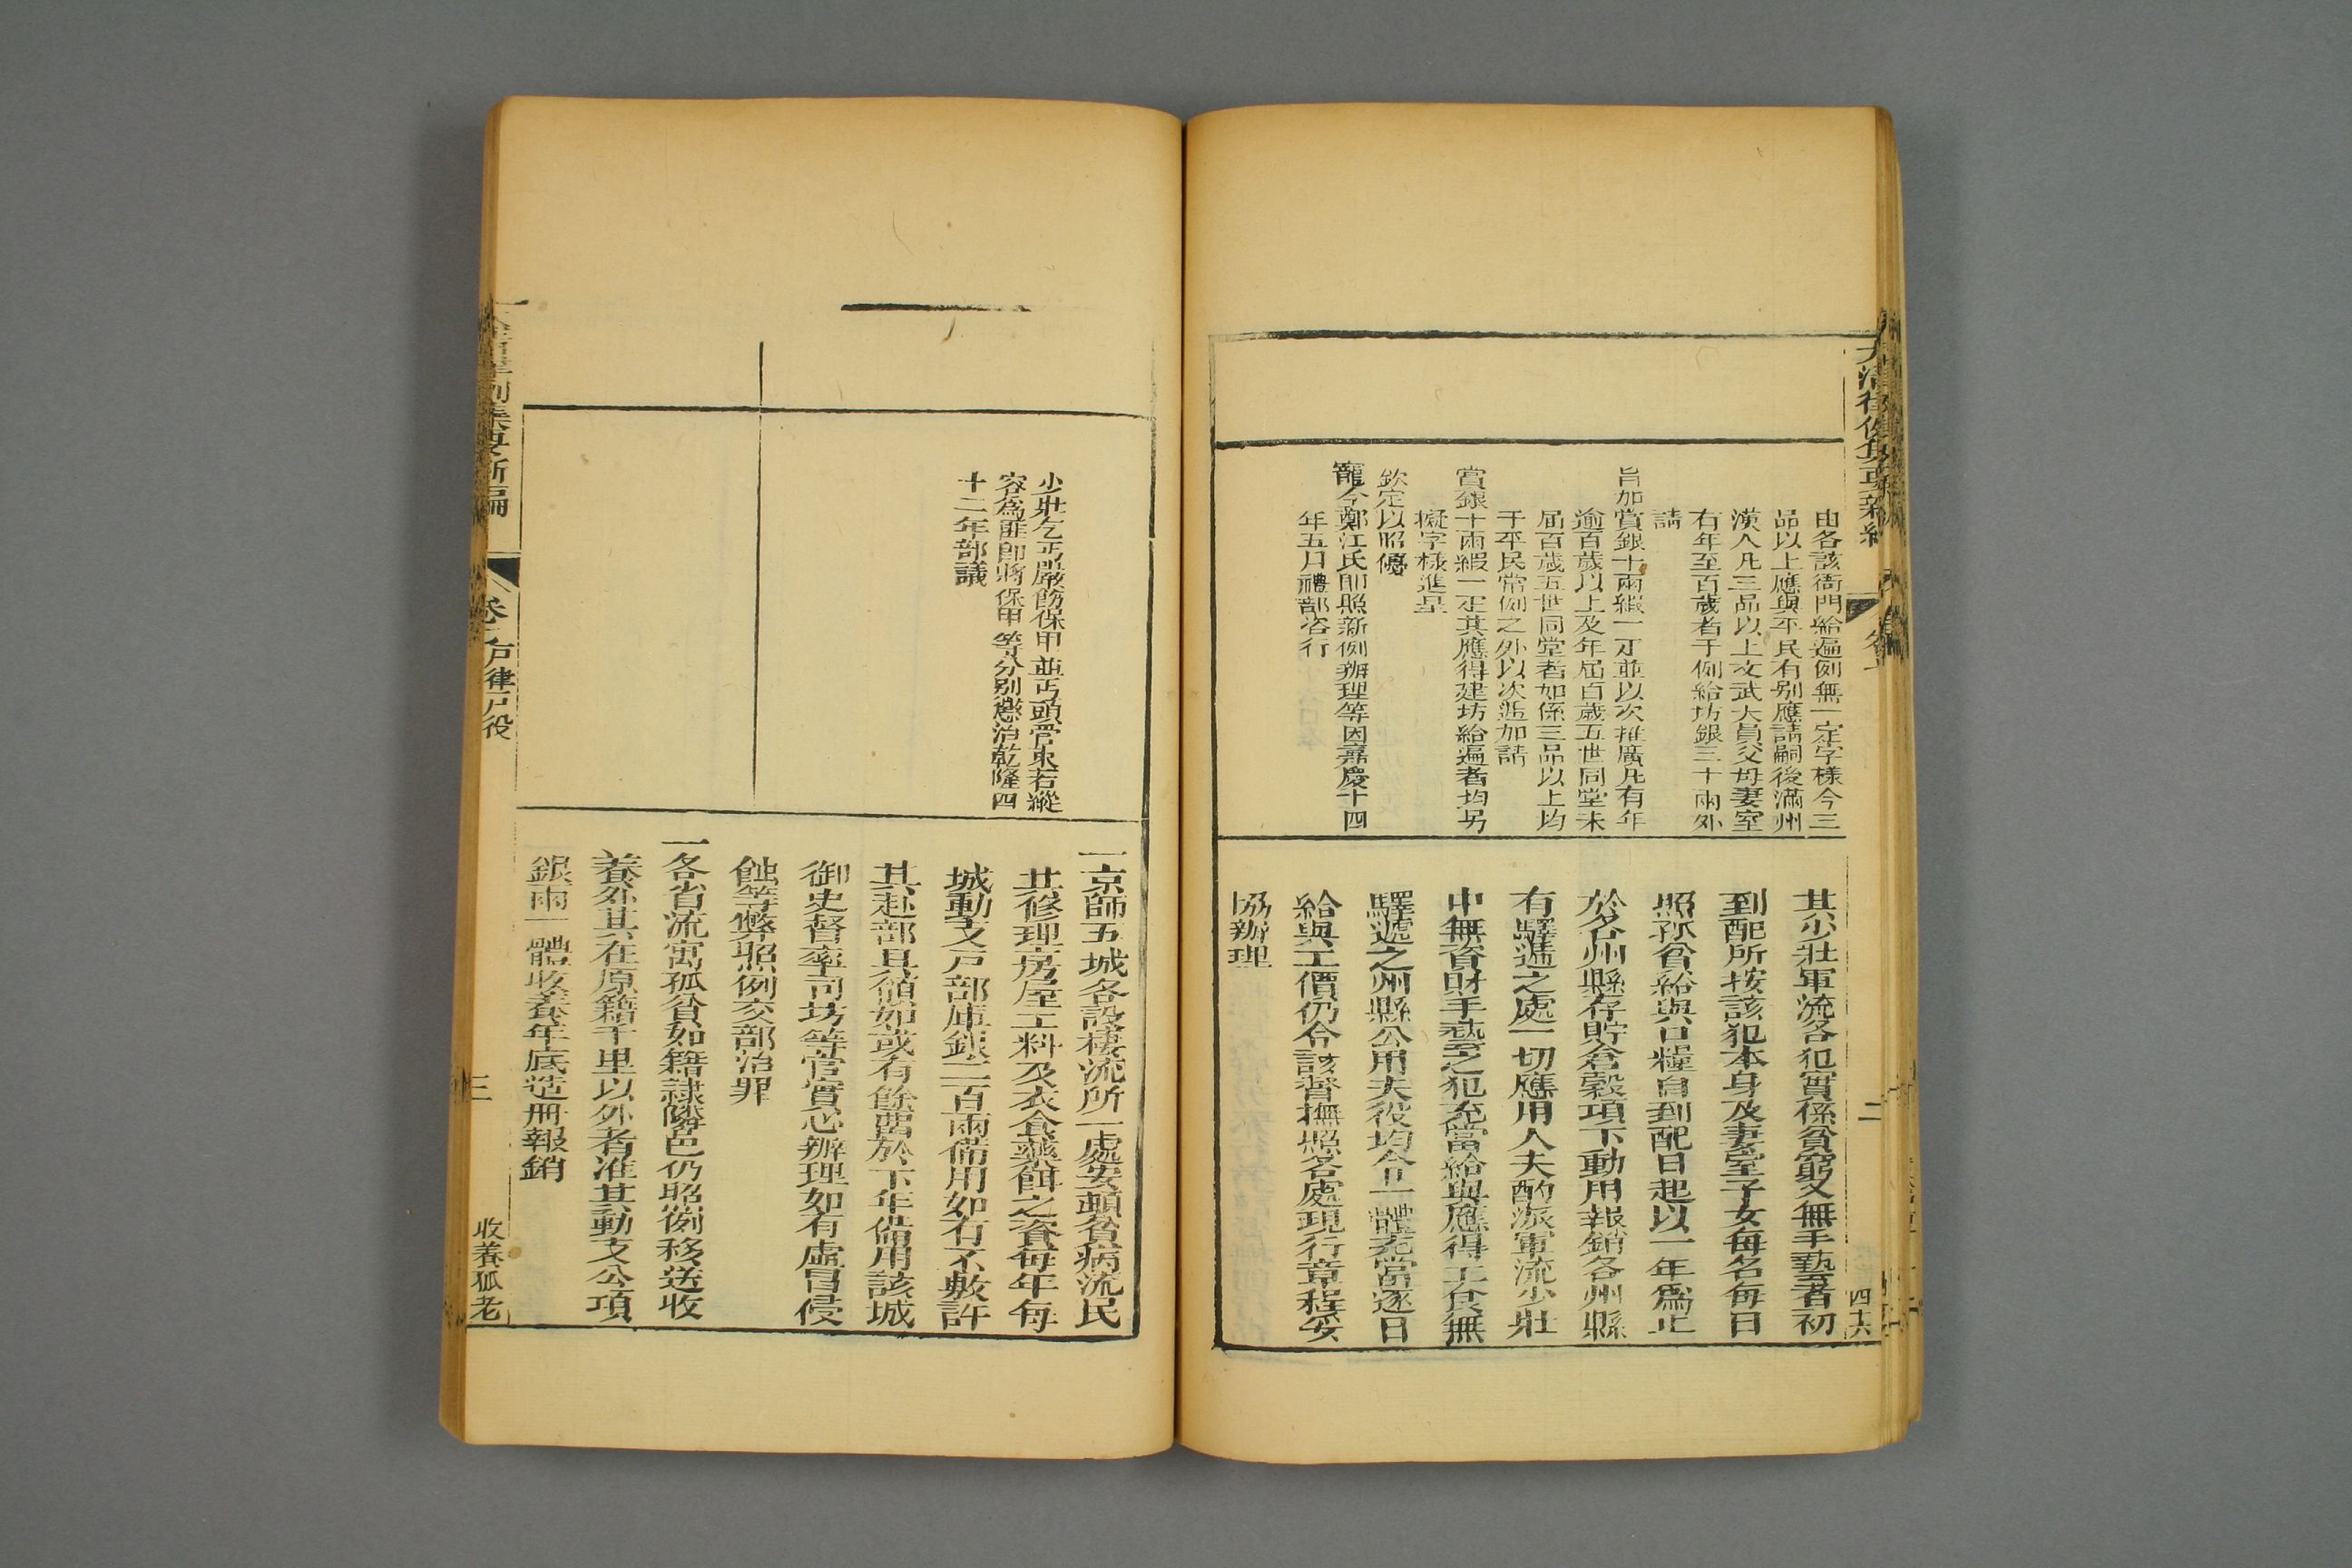 大清律例集要新編
二
四十六
由各該衙門給匾例無一定字樣今三
品以上應與平民有別應請嗣後滿州
漢人凡三品以上文武大員父母妻室
有年至百歲者于例給坊銀三十兩外
請
旨加賞銀十兩緞一疋並以次推廣凡有年
逾百歲以上及年届百歲五世同堂未
届百歲五世同堂者如係三品以上均
于平民常例之外以次遞加請
賞銀十兩緞一疋其應得建坊給匾者均另
擬字樣進呈
欽定以昭優
寵今鄭江氏即照新例辦理等因嘉慶十四
年五月禮部咨行
其少壯軍流各犯實係貧窮又無手藝者初
到配所按該犯本身及妻室子女每名每日
照孤貧給與口糧自到配日起以一年爲止
於各州縣存貯倉穀項下動用報銷各州縣
有驛遞之處一切應用人夫酌派軍流少壯
中無資財手藝之犯充當給與應得工食無
驛遞之州縣公用夫役均令一體充當逐日
給與工價仍令該督撫照各處現行章程妥
協辦理
少壯乞丐嚴飭保甲並丐頭管束若縱
容爲匪即將保甲等分别懲治乾隆四
十二年部議
一京師五城各設棲流所一處安頓貧病流民
其修理房屋工料及衣食藥餌之資每年每
城動支戶部庫銀二百兩備用如有不敷許
其赴部具領如或有餘留於下年備用該城
御史督率司坊等官實心辦理如有虛冒侵
蝕等弊照例交部治罪
一各省流寓孤貧如籍隷隣邑仍照例移送收
養外其在原籍千里以外者准其動支公項
銀兩一體收養年底造冊報銷
大清律例集要新編
卷
戶律戶役
三
收養孤老